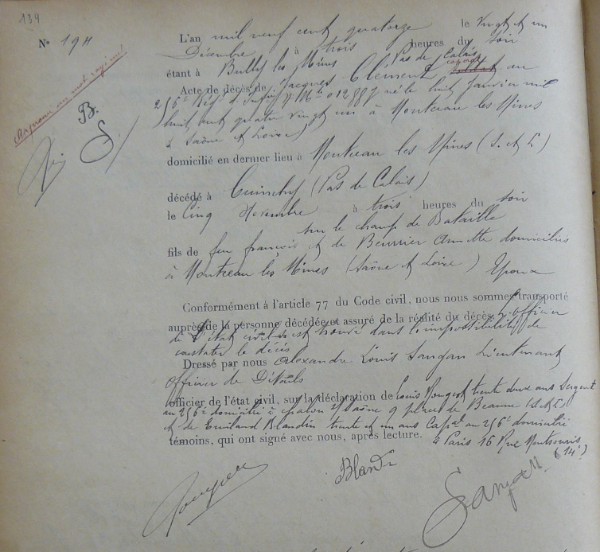 134
N° 194
L'an mil neuf cent quatorze le vingt et un
Décembre à trois heures du soir
étant à Bully les Mines Pas de Calais
Acte de décès de Jacques Clément caporal au
256e Rég. d'Inf. Mle 012887 né le huit Janvier mil
huit cent quatre vingt un à Montceau les Mines
(Saône et Loire)
domicilié en dernier lieu à Montceau les Mines (S. et L)
décédé à Cuinchy (Pas de Calais)
le Cinq Novembre à trois heures du soir
sur le champ de Bataille
fils de feu françois et de Beurrier domiciliés
à Montceau les Mines (Saône et Loire)
Conformément à l'article 77 du Code civil, nous nous sommes transporté
auprès de la personne décédée et assuré de la réalité du décès. officier
de l'état civil s'est trouvé dans l'impossibilité de
constater le décès
Dressé par nous Alexandre Louis Lieutenant
officier de Détails
officier de l'état civil, sur la déclaration de Louis trente deux ans Sergent
au 256e domicilié à Chalon s/ Saône 9 de Beaune (S & L)
et de Blandin trente et un ans au 256e domicilié
témoins, qui ont signé avec nous, après lecture. à Paris 16 Rue
Blandin